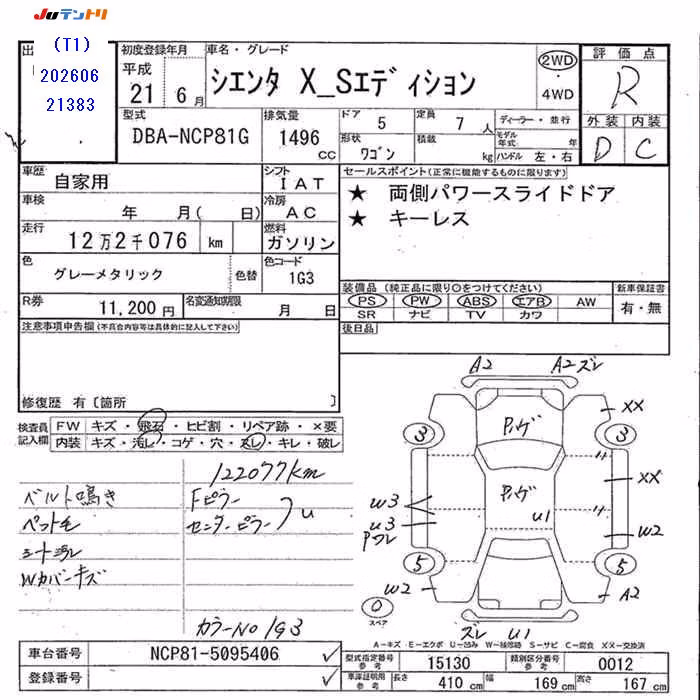 JUテントリ
出
(T1)
202606
21383
初度登録年月
平成
21 6月
車名・グレード
シエンタ X_Sエディション
2WD
・
4WD
評価点
R
外装 内装
D C
型式
DBA-NCP81G
排気量
1496
CC
ドア 5
定員 7 人
形状 ワゴン
積載 kg
ディーラー・並行
モデル年式 年
ハンドル 左・右
車歴
自家用
シフト
IAT
車検
年 月( 日)
冷房
AC
走行
12万2千076 km
燃料
ガソリン
色
グレーメタリック
色替
色コード
1G3
R券
11,200円
名変通知期限
月 日
セールスポイント(正常に機能するものに限ります)
★ 両側パワースライドドア
★ キーレス
装備品(純正品に限り○をつけてください)
新車保証書
PS PW ABS エアB AW
SR ナビ TV カワ
有・無
後日品
注意事項申告欄(不具合内容等は具体的に記入して下さい)
修復歴 有〔箇所 〕
検査員
記入欄
FW キズ・飛石・ヒビ割・リペア跡・×要
内装 キズ・汚レ・コゲ・穴・スレ・キレ・破レ
122077km
ベルト鳴き
Fピラー
センターピラー
U
ペット毛
シート汚レ
Wカバーキズ
カラーNo 1G3
A2
A2 ズレ
XX
3
3
XX
W3
U3
Pワレ
U1
W2
5
5
W2
A2
0
スペア
ズレ U1
A-キズ E-エクボ U-凹み W-補修跡 S-サビ C-腐食 XX-交換済
車台番号
NCP81-5095406
登録番号
型式指定番号
参考
15130
類別区分番号
参考
0012
車庫証明用
参考
長さ
410 cm
幅
169 cm
高さ
167 cm